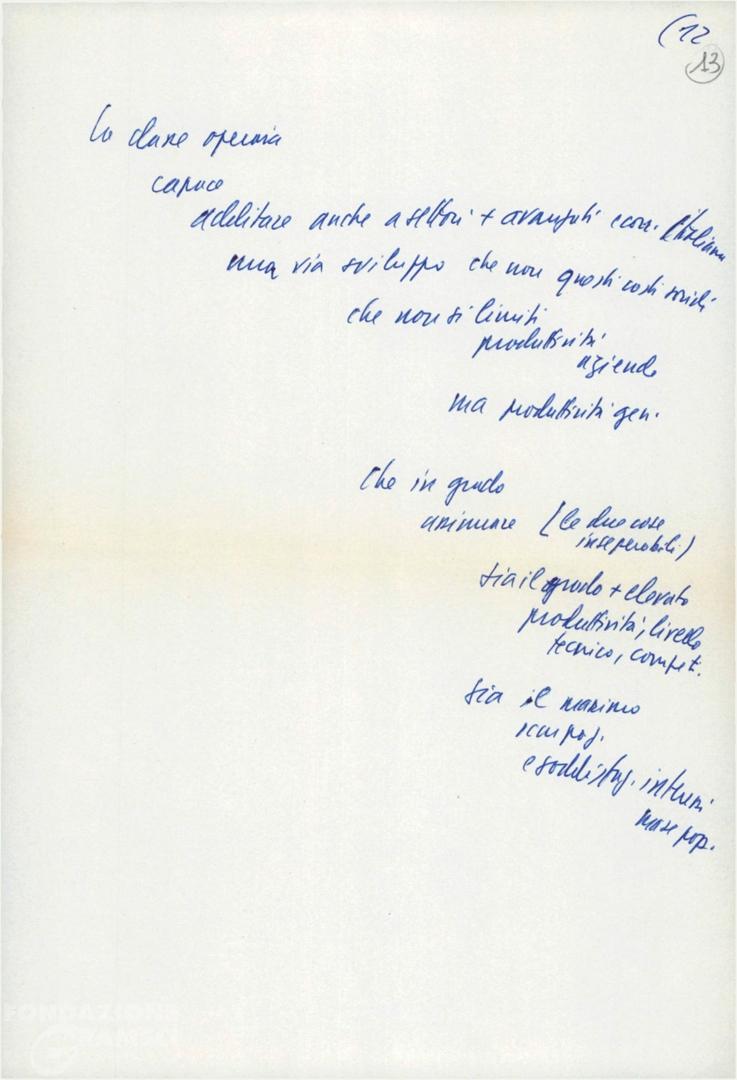 (12
13
La classe operaia
capace
additare anche a settori + avanzati econ. italiana
una via sviluppo che non questi costi sociali
che non si limiti
produttività
aziende
ma produttività gen.
Che in grado
assicurare (le due cose
inseparabili)
sia il grado + elevato
produttività, livello
tecnico, compet.
sia il massimo
occupaz.
e soddisfaz. interessi
masse pop.
FONDAZIONE
GRAMSCI